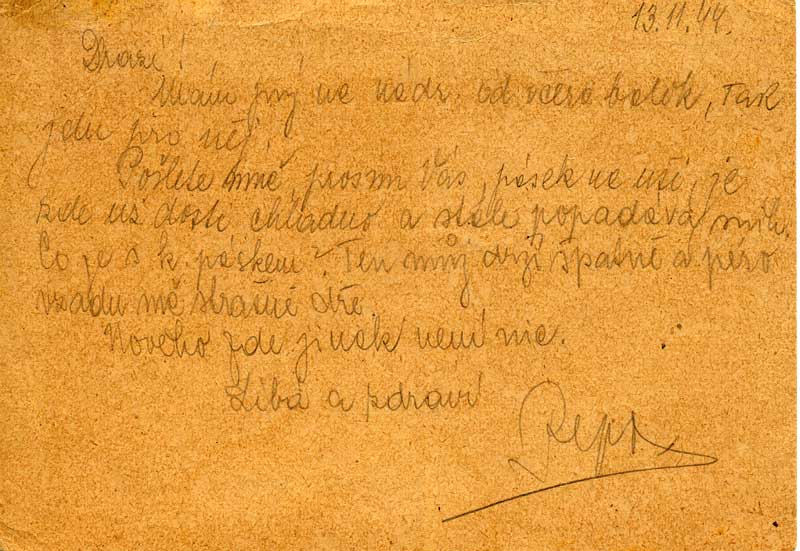 13.11.44.
Drazí!
Mám prý na nádr. od včera balík, tak
jedu pro něj.
Pošlete mně, prosím Vás, pásek na uši, je
zde už dosti chladno a stále popadává sníh.
Co je s k. páskem? Ten můj drží špatně a péro
vzadu mě strašně dře.
Nového zde jinak není nic.
Líbá a zdraví